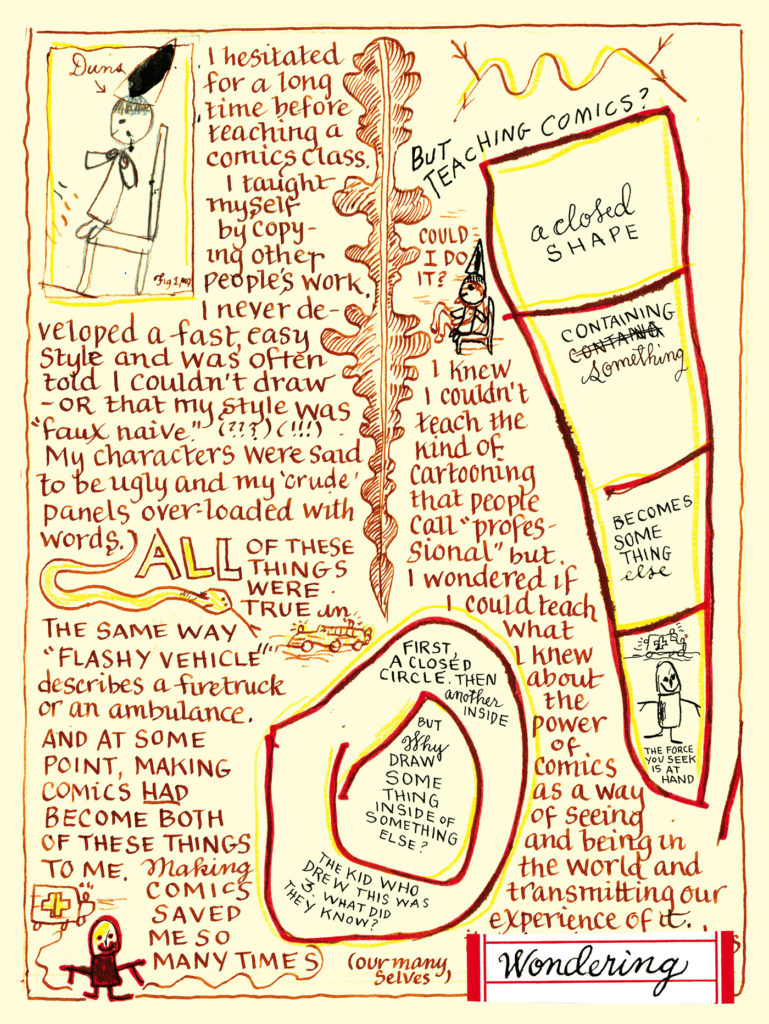 Duns
Fig 1, 
I hesitated
for a long
time before
teaching a
comics class.
I taught
myself
by copy-
ing other
people's work.
I never de-
veloped a fast, easy
style and was often
told I couldn't draw
-OR that my style was
"faux naive." (???) (!!!)
My characters were said
to be ugly and my 'crude'
panels over-loaded with
words.
ALL OF THESE
THINGS
WERE
TRUE in
THE SAME WAY
"FLASHY VEHICLE"
describes a firetruck
or an ambulance.
AND AT SOME
POINT, MAKING
COMICS HAD
BECOME BOTH
OF THESE THINGS
TO ME. Making
COMICS
SAVED
ME SO
MANY TIMES
(our many
selves)
BUT
TEACHING COMICS?
COULD
I DO
IT?
I KNEW
I couldn't
teach the
kind of
cartooning
that people
call "profes-
sional" but
I wondered if
I could teach
what
I knew
about
the
power
of
comics
as a way
of seeing
and being in
the world and
transmitting our
experience of it.
a closed
SHAPE
CONTAINING
CONTANG
something
BECOMES
SOME
THING
else
THE FORCE
YOU SEEK
IS AT
HAND
FIRST,
A CLOSED
CIRCLE. THEN
another
INSIDE
BUT
Why
DRAW
SOME
THING
INSIDE OF
SOMETHING
ELSE?
THE KID WHO
DREW THIS WAS
3. WHAT DID
THEY KNOW?
Wondering
s